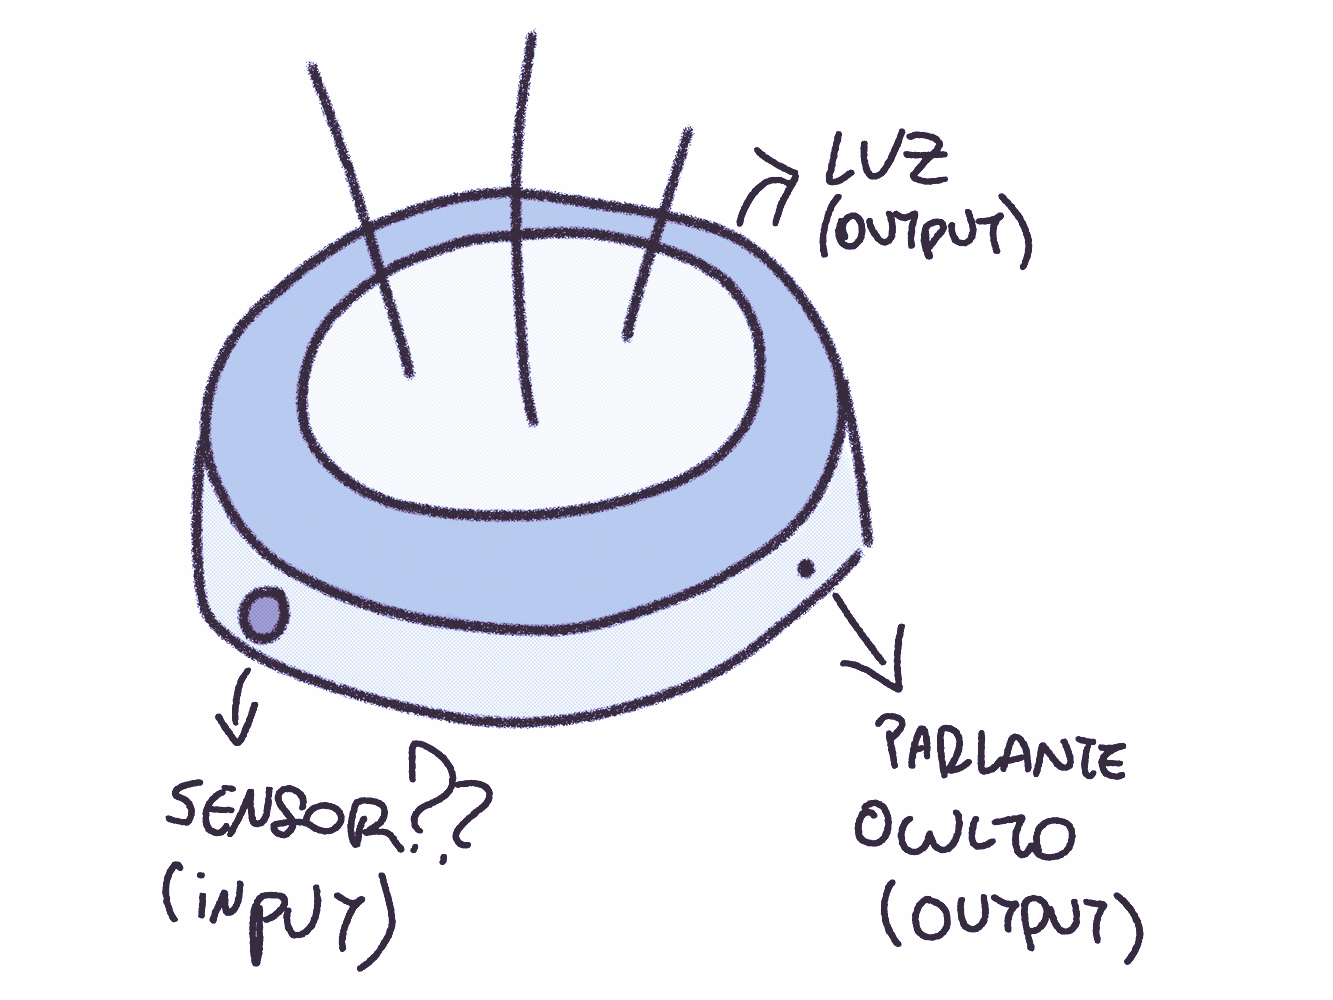 LUZ
(OUTPUT)
SENSOR??
(INPUT)
PARLANTE
OCULTO
(OUTPUT)